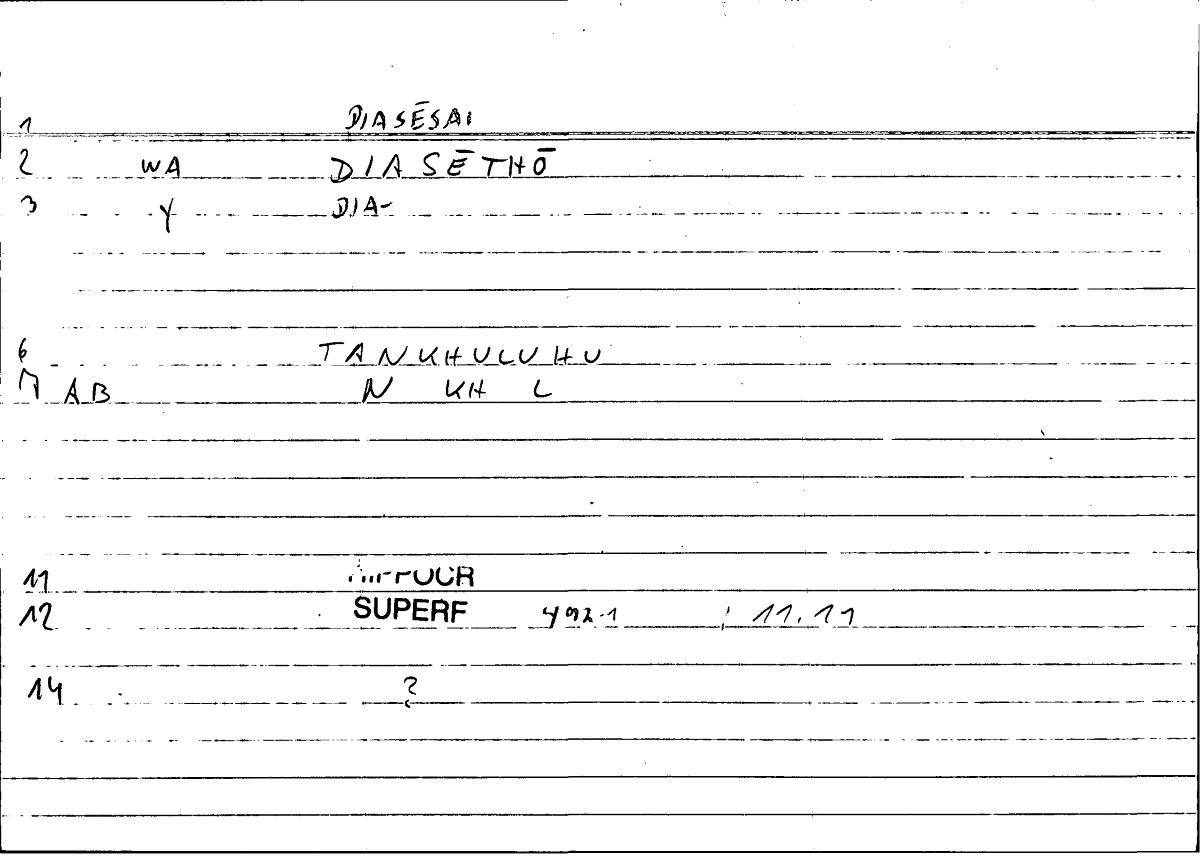 1 DIASĒSAI
2 WA DIASĒTHŌ
3 Y DIA-
6 TANKHULUHU
7 AB N KH L
11 HIPPOCR
12 SUPERF 492.1 ; 11.11
14 ?